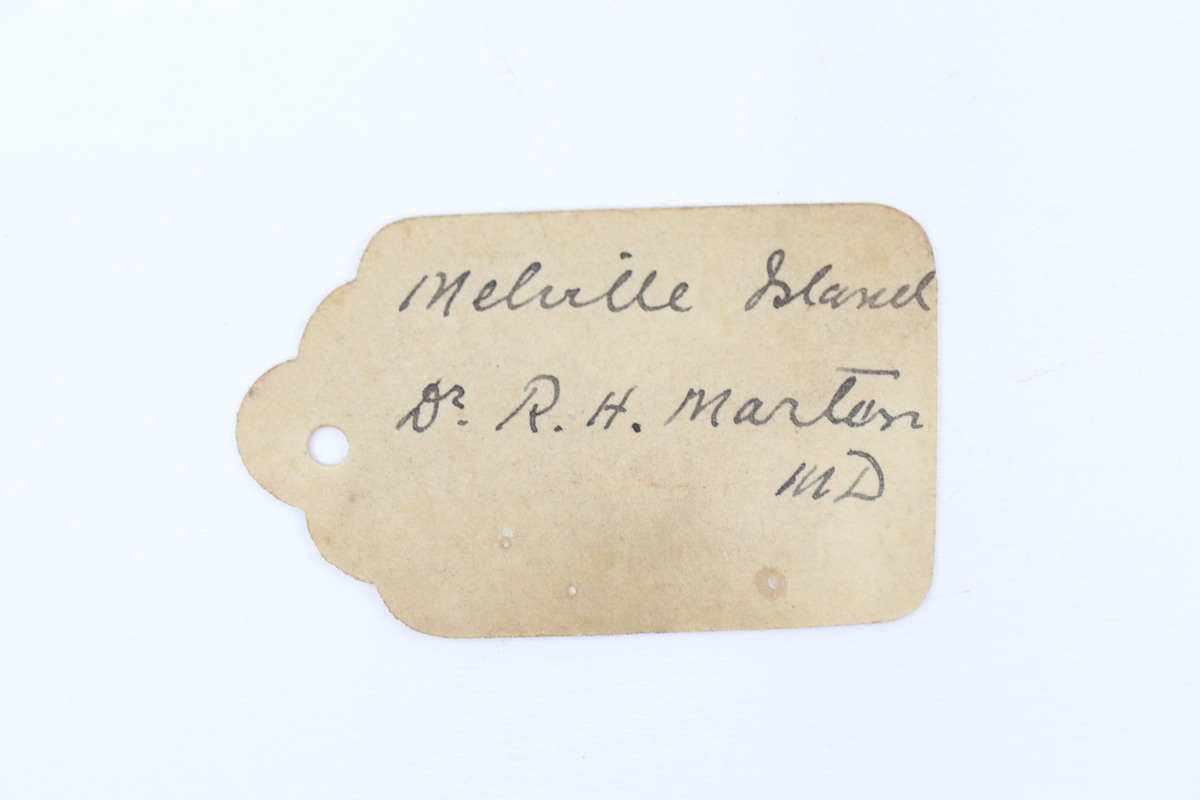 Melville Island
Dr. R. H. Marten
MD